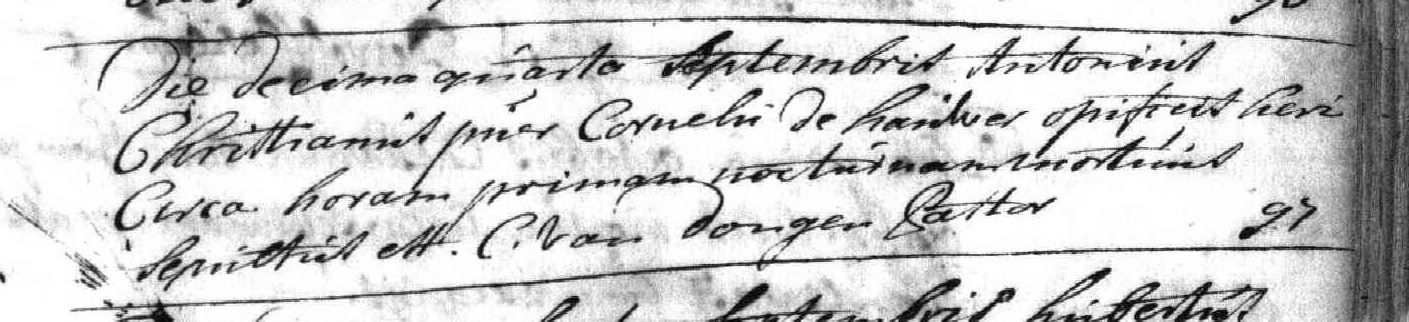 Die decima quarta Septembris Antonius
Christianus puer Cornelii de hauwer opificis heri
Circa horam primam nocturnam mortuus
Sepultus est. C. van Dongen Pastor 97
Septembris hubertus